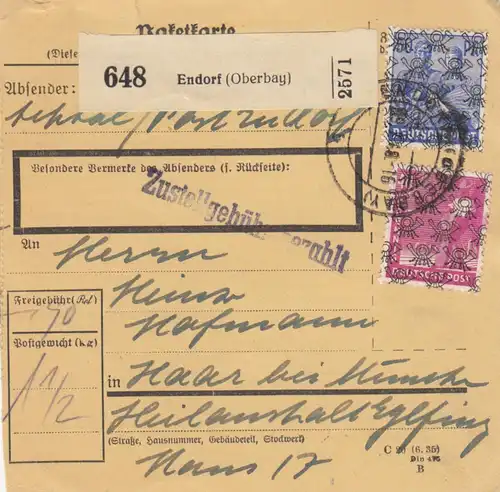 Paketkarte
(Diese
648 Endorf (Oberbay) 2571
Absender:
50 Pf
DEUTSCHE
Besondere Vermerke des Absenders (s. Rückseite):
Zustellgebühr bezahlt
DEUTSCHE POST
An Herrn
Heinz
Hofmann
Freigebühr (Rpf.)
70
Postgewicht (kg)
1 1/2
in Haar bei München
Heilanstalt Eglfing
(Straße, Hausnummer, Gebäudeteil, Stockwerk)
Haus 17
C 26 (6. 35)
Din 476
B